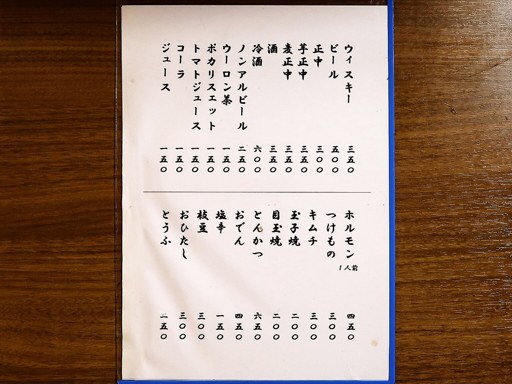 ウィスキー 三五〇
ビール 五〇〇
正中 三〇〇
芋正中 三五〇
麦正中 三五〇
酒 三五〇
冷酒 六〇〇
ノンアルビール 二五〇
ウーロン茶 一五〇
ポカリスエット 一五〇
トマトジュース 一五〇
コーラ 一五〇
ジュース 一五〇
ホルモン 1人前 四五〇
つけもの 三〇〇
キムチ 三〇〇
玉子焼 二〇〇
目玉焼 二〇〇
とんかつ 六五〇
おでん 四五〇
塩辛 一五〇
枝豆 三〇〇
おひたし 三〇〇
とうふ 二五〇